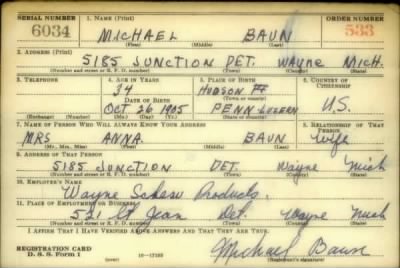 SERIAL NUMBER 1. NAME (Print) ORDER NUMBER
6034 MICHAEL BAUN 533
(First) (Middle) (Last)
2. ADDRESS (Print)
5185 JUNCTION DET. WAYNE MICH.
(Number and street or R. F. D. number) (Town) (County) (State)
3. TELEPHONE 4. AGE IN YEARS 5. PLACE OF BIRTH 6. COUNTRY OF CITIZENSHIP
34 HUDSON
DATE OF BIRTH (Town or county)
OCT 26 1905 PENN LUZERN U.S.
(Exchange) (Number) (Mo.) (Day) (Yr.) (State or country)
7. NAME OF PERSON WHO WILL ALWAYS KNOW YOUR ADDRESS 8. RELATIONSHIP OF THAT PERSON
MRS ANNA. BAUN Wife
(Mr., Mrs., Miss) (First) (Middle) (Last)
9. ADDRESS OF THAT PERSON
5185 JUNCTION DET. Wayne Mich
(Number and street or R. F. D. number) (Town) (County) (State)
10. EMPLOYER'S NAME
Wayne Screw Products.
11. PLACE OF EMPLOYMENT OR BUSINESS
521 St Jean Det. Wayne Mich
(Number and street or R. F. D. number) (Town) (County) (State)
I AFFIRM THAT I HAVE VERIFIED ABOVE ANSWERS AND THAT THEY ARE TRUE.
REGISTRATION CARD
D. S. S. Form 1 Michael Baun
(Registrant's signature)